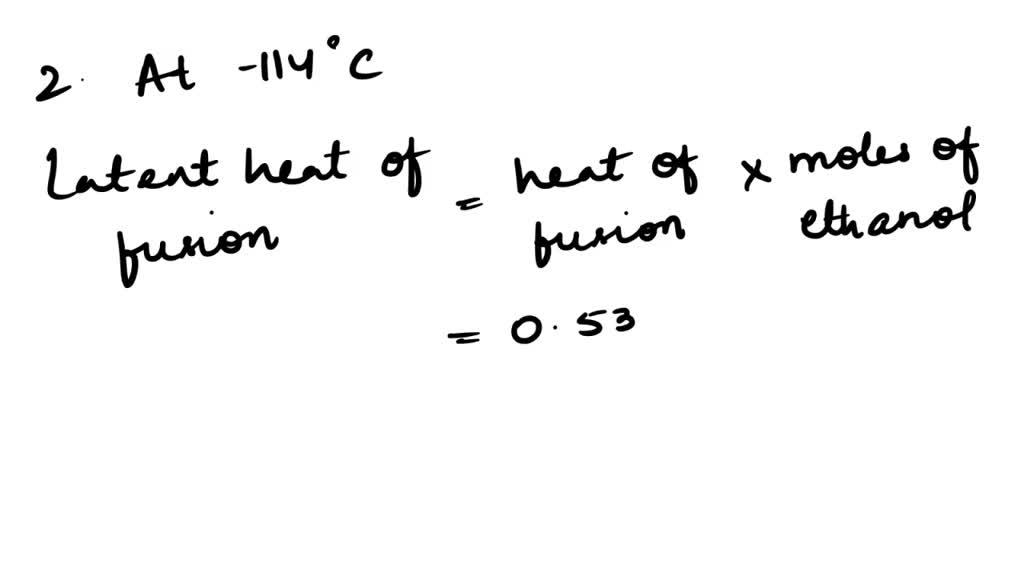 2. At -114°C
Latent heat of = heat of × moles of
fusion fusion ethanol
= 0.53